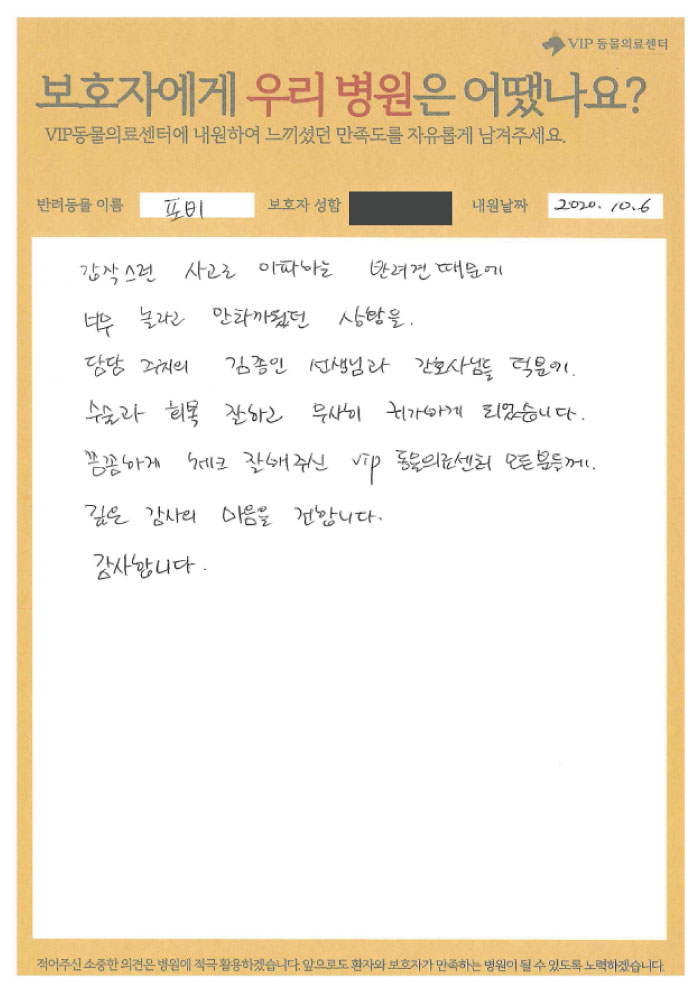 VIP 동물의료센터
보호자에게 우리 병원은 어땠나요?
VIP동물의료센터에 내원하여 느끼셨던 만족도를 자유롭게 남겨주세요.
반려동물 이름 포비 보호자 성함 내원날짜 2020. 10. 6
갑작스런 사고로 아파하는 반려견 때문에
너무 놀라고 안타까웠던 상황을.
담당 주치의 김종인 선생님과 간호사님들 덕분에.
수술과 회복 잘하고 무사히 귀가하게 되었습니다.
꼼꼼하게 체크 잘해주신 vip 동물의료센터 모든분들께.
깊은 감사의 마음을 전합니다.
감사합니다.
적어주신 소중한 의견은 병원에 적극 활용하겠습니다. 앞으로도 환자와 보호자가 만족하는 병원이 될 수 있도록 노력하겠습니다.